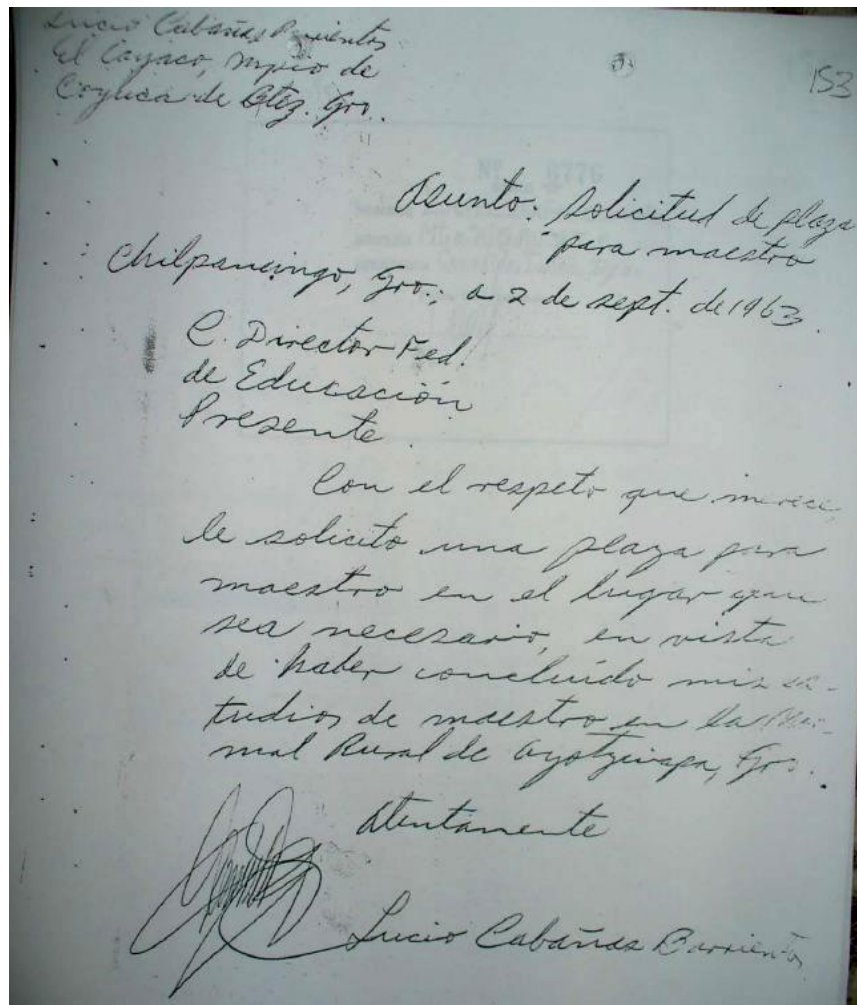 Lucio Cabañas Barrientos
El Cayaco, mpio de
Coyuca de Btez. Gro.
153
Asunto: Solicitud de plaza
para maestro
Chilpancingo, Gro.; a 2 de sept. de 1963.
C. Director Fed.
de Educación
Presente.
Con el respeto que merece,
le solicito una plaza para
maestro en el lugar que
sea necesario, en vista
de haber concluído mis es-
tudios de maestro en la Nor-
mal Rural de Ayotzinapa, Gro.
Atentamente
Lucio Cabañas Barrientos